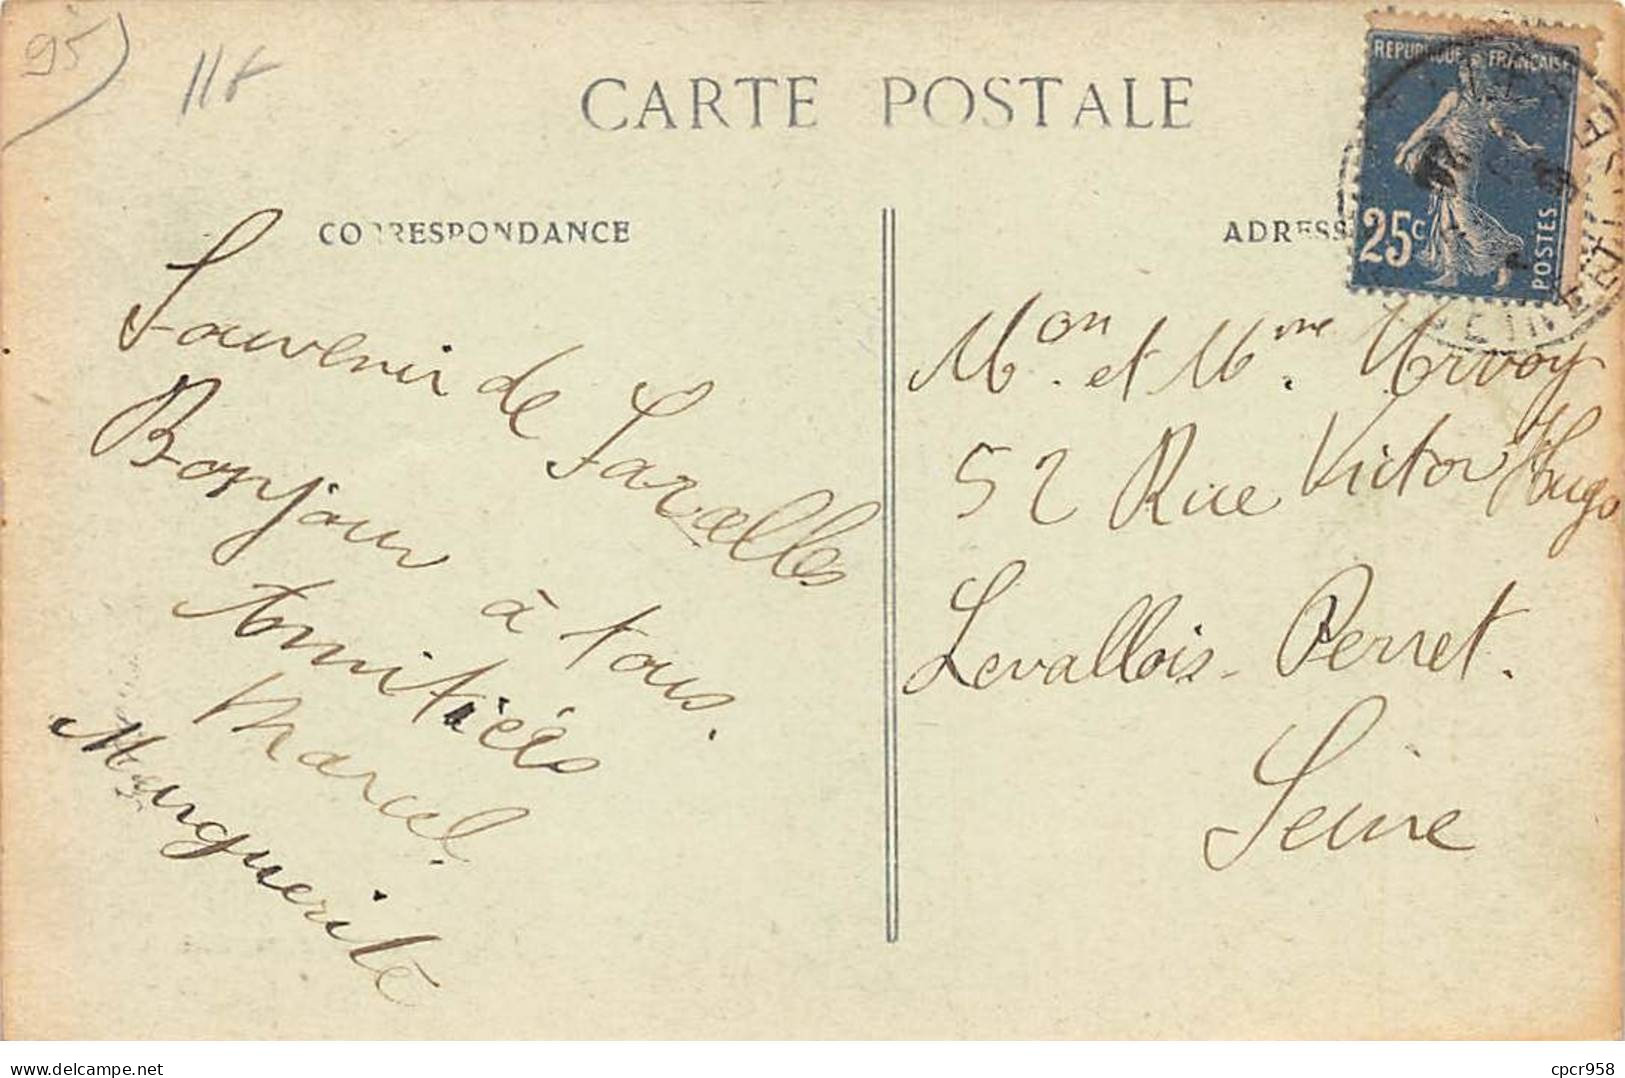 95)
11f
CARTE POSTALE
CORRESPONDANCE
ADRESSE
REPUBLIQUE FRANCAISE
25c
POSTES
Souvenir de Sarcelles
Bonjour à tous.
Amitiés
Marcel.
Marguerite
Mon. et Mme. Morvoy
52 Rue Victor Hugo
Levallois-Perret.
Seine
Delcampe.net
cpcr958